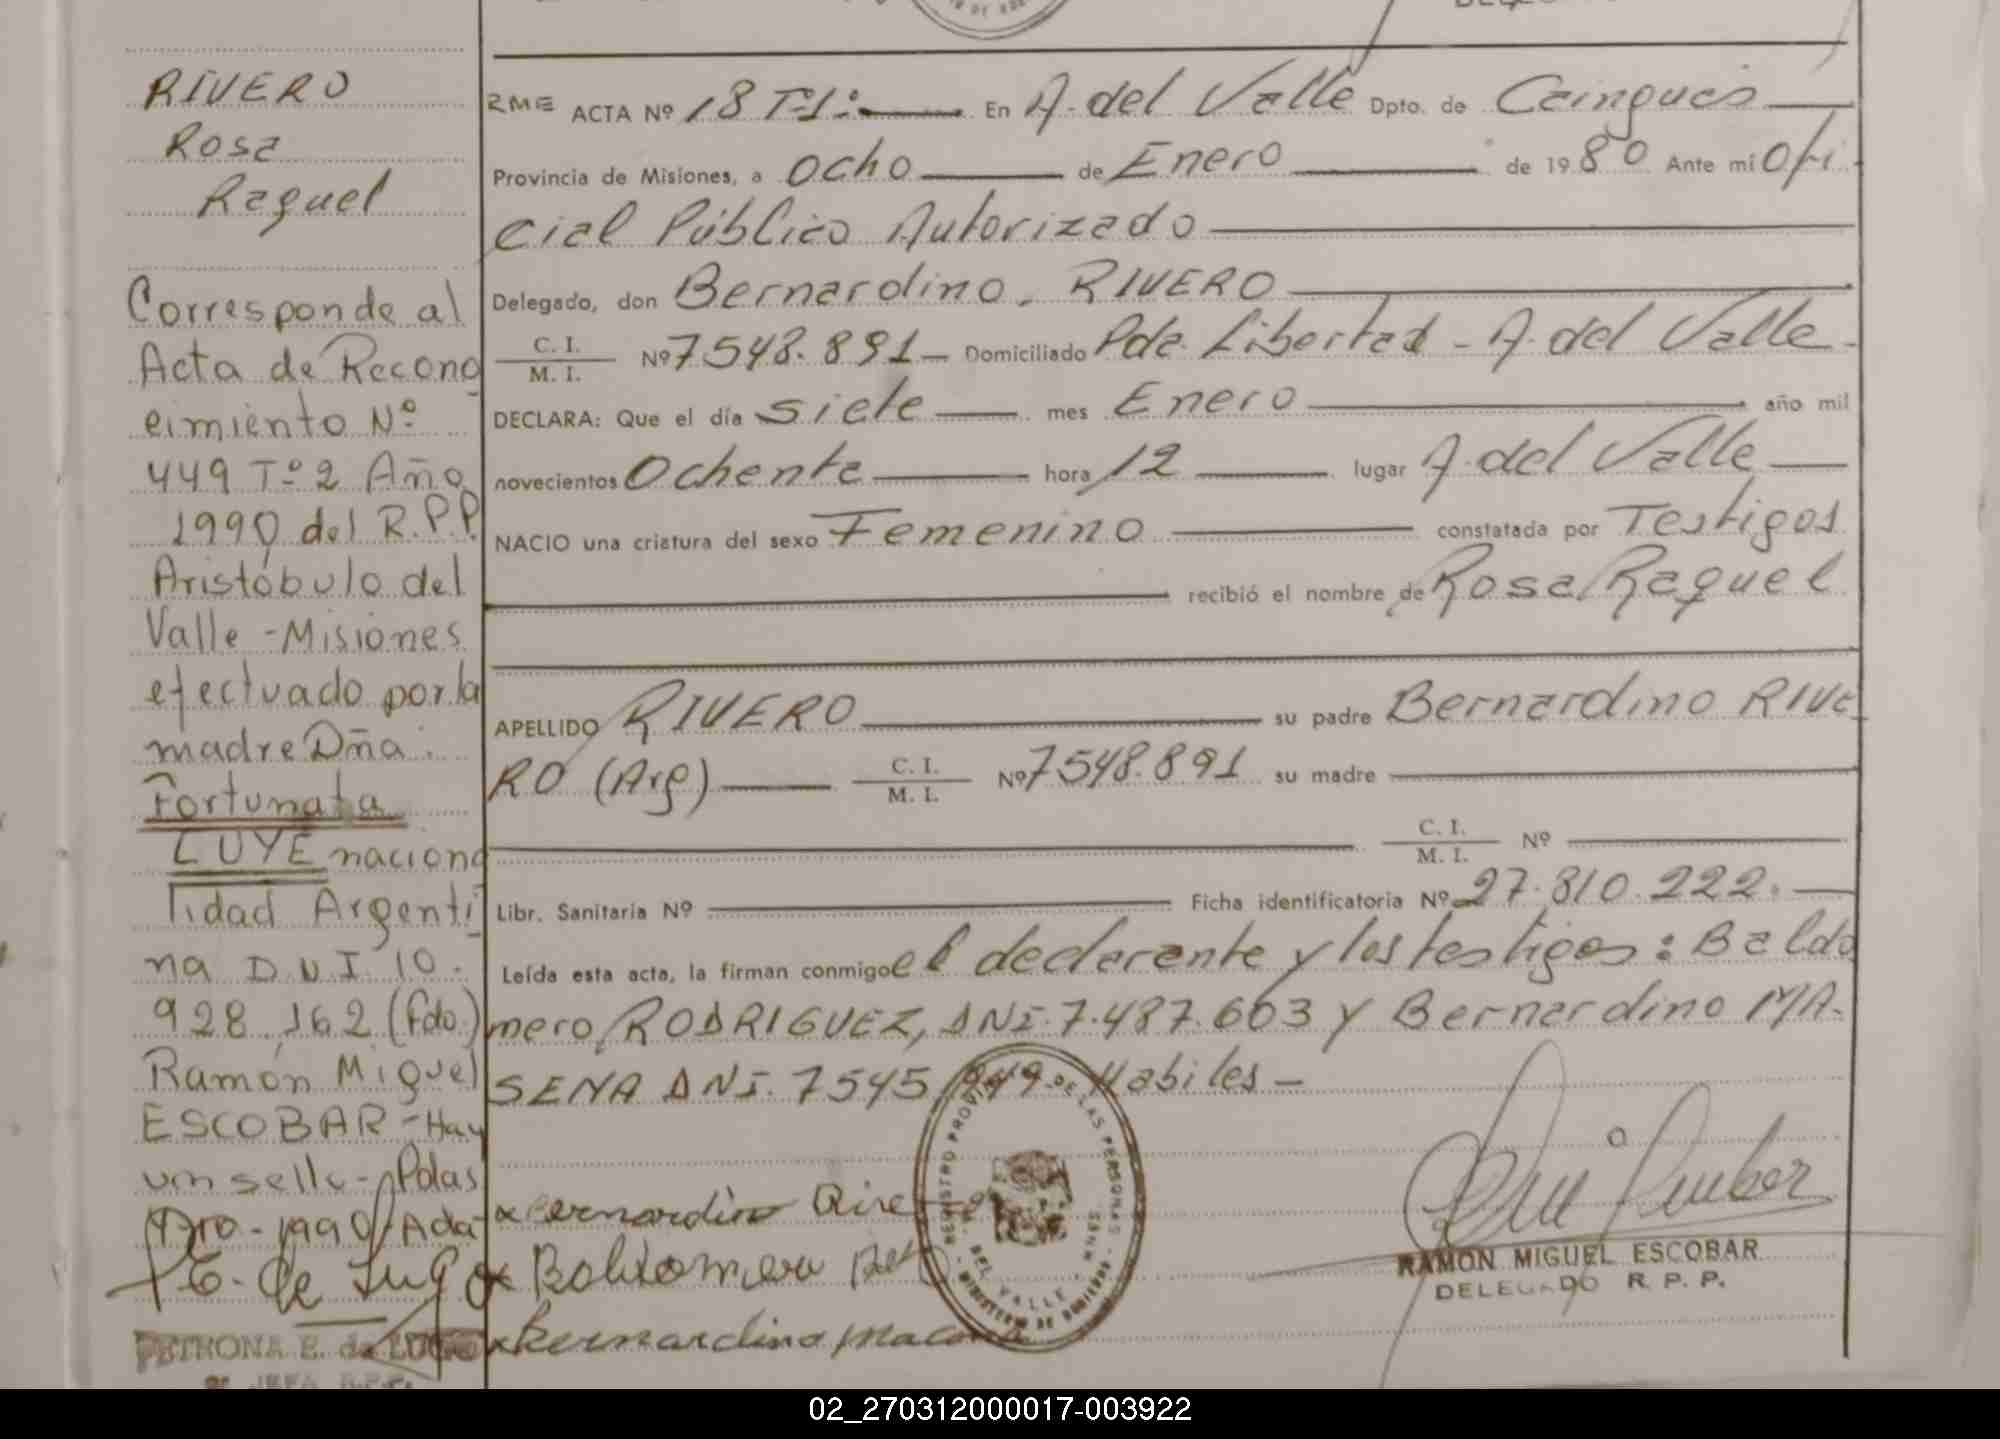 RIVERO
Rosa
Raquel
Corresponde al
Acta de Recono
cimiento Nº
449 Tº2 Año
1990 del R.P.P.
Aristóbulo del
Valle - Misiones
efectuado por la
madre Dña.
Fortunata
LUYE naciona
lidad Argenti
na D.N.I. 10.
928.162 (fdo.)
Ramón Miguel
ESCOBAR - Hay
un sello - Pdas
PETRONA E. de LUGO
RME ACTA Nº 18 Tº1º En A. del Valle Dpto. de Cainguás
Provincia de Misiones, a ocho de Enero de 1980 Ante mí Ofi
cial Público Autorizado
Delegado, don Bernardino. RIVERO
C. I.
M. I. Nº 7548.891 - Domiciliado Pda. Libertad - A. del Valle -
DECLARA: Que el día siete mes Enero año mil
novecientos Ochenta hora 12 lugar A. del Valle
NACIO una criatura del sexo Femenino constatada por Testigos
recibió el nombre de Rosa Raquel
APELLIDO RIVERO su padre Bernardino RIVE
RO (Arg) C. I.
M. I. Nº 7548.891 su madre
C. I.
M. I. Nº
Libr. Sanitaria Nº Ficha identificatoria Nº 27.810.222.
Leída esta acta, la firman conmigo el declarante y los testigos: Baldo
mero RODRIGUEZ, DNI. 7.487.603 y Bernardino MA-
SENA DNI. 7545 Habiles -
REGISTRO PROVINCIAL DE LAS PERSONAS
A. DEL VALLE
MINISTERIO DE GOBIERNO
Bernardino
Bernardino
RAMON MIGUEL ESCOBAR
DELEGADO R. P. P.
02_270312000017-003922